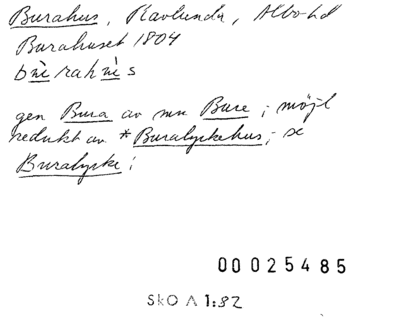 Burahus, Ravlunda, Albo hd
Burahuset 1804
gen Bura av mn Bure; möjl
redukt av *Buralyckehus; se
Buralycke;
00025485
SkO A 1:82